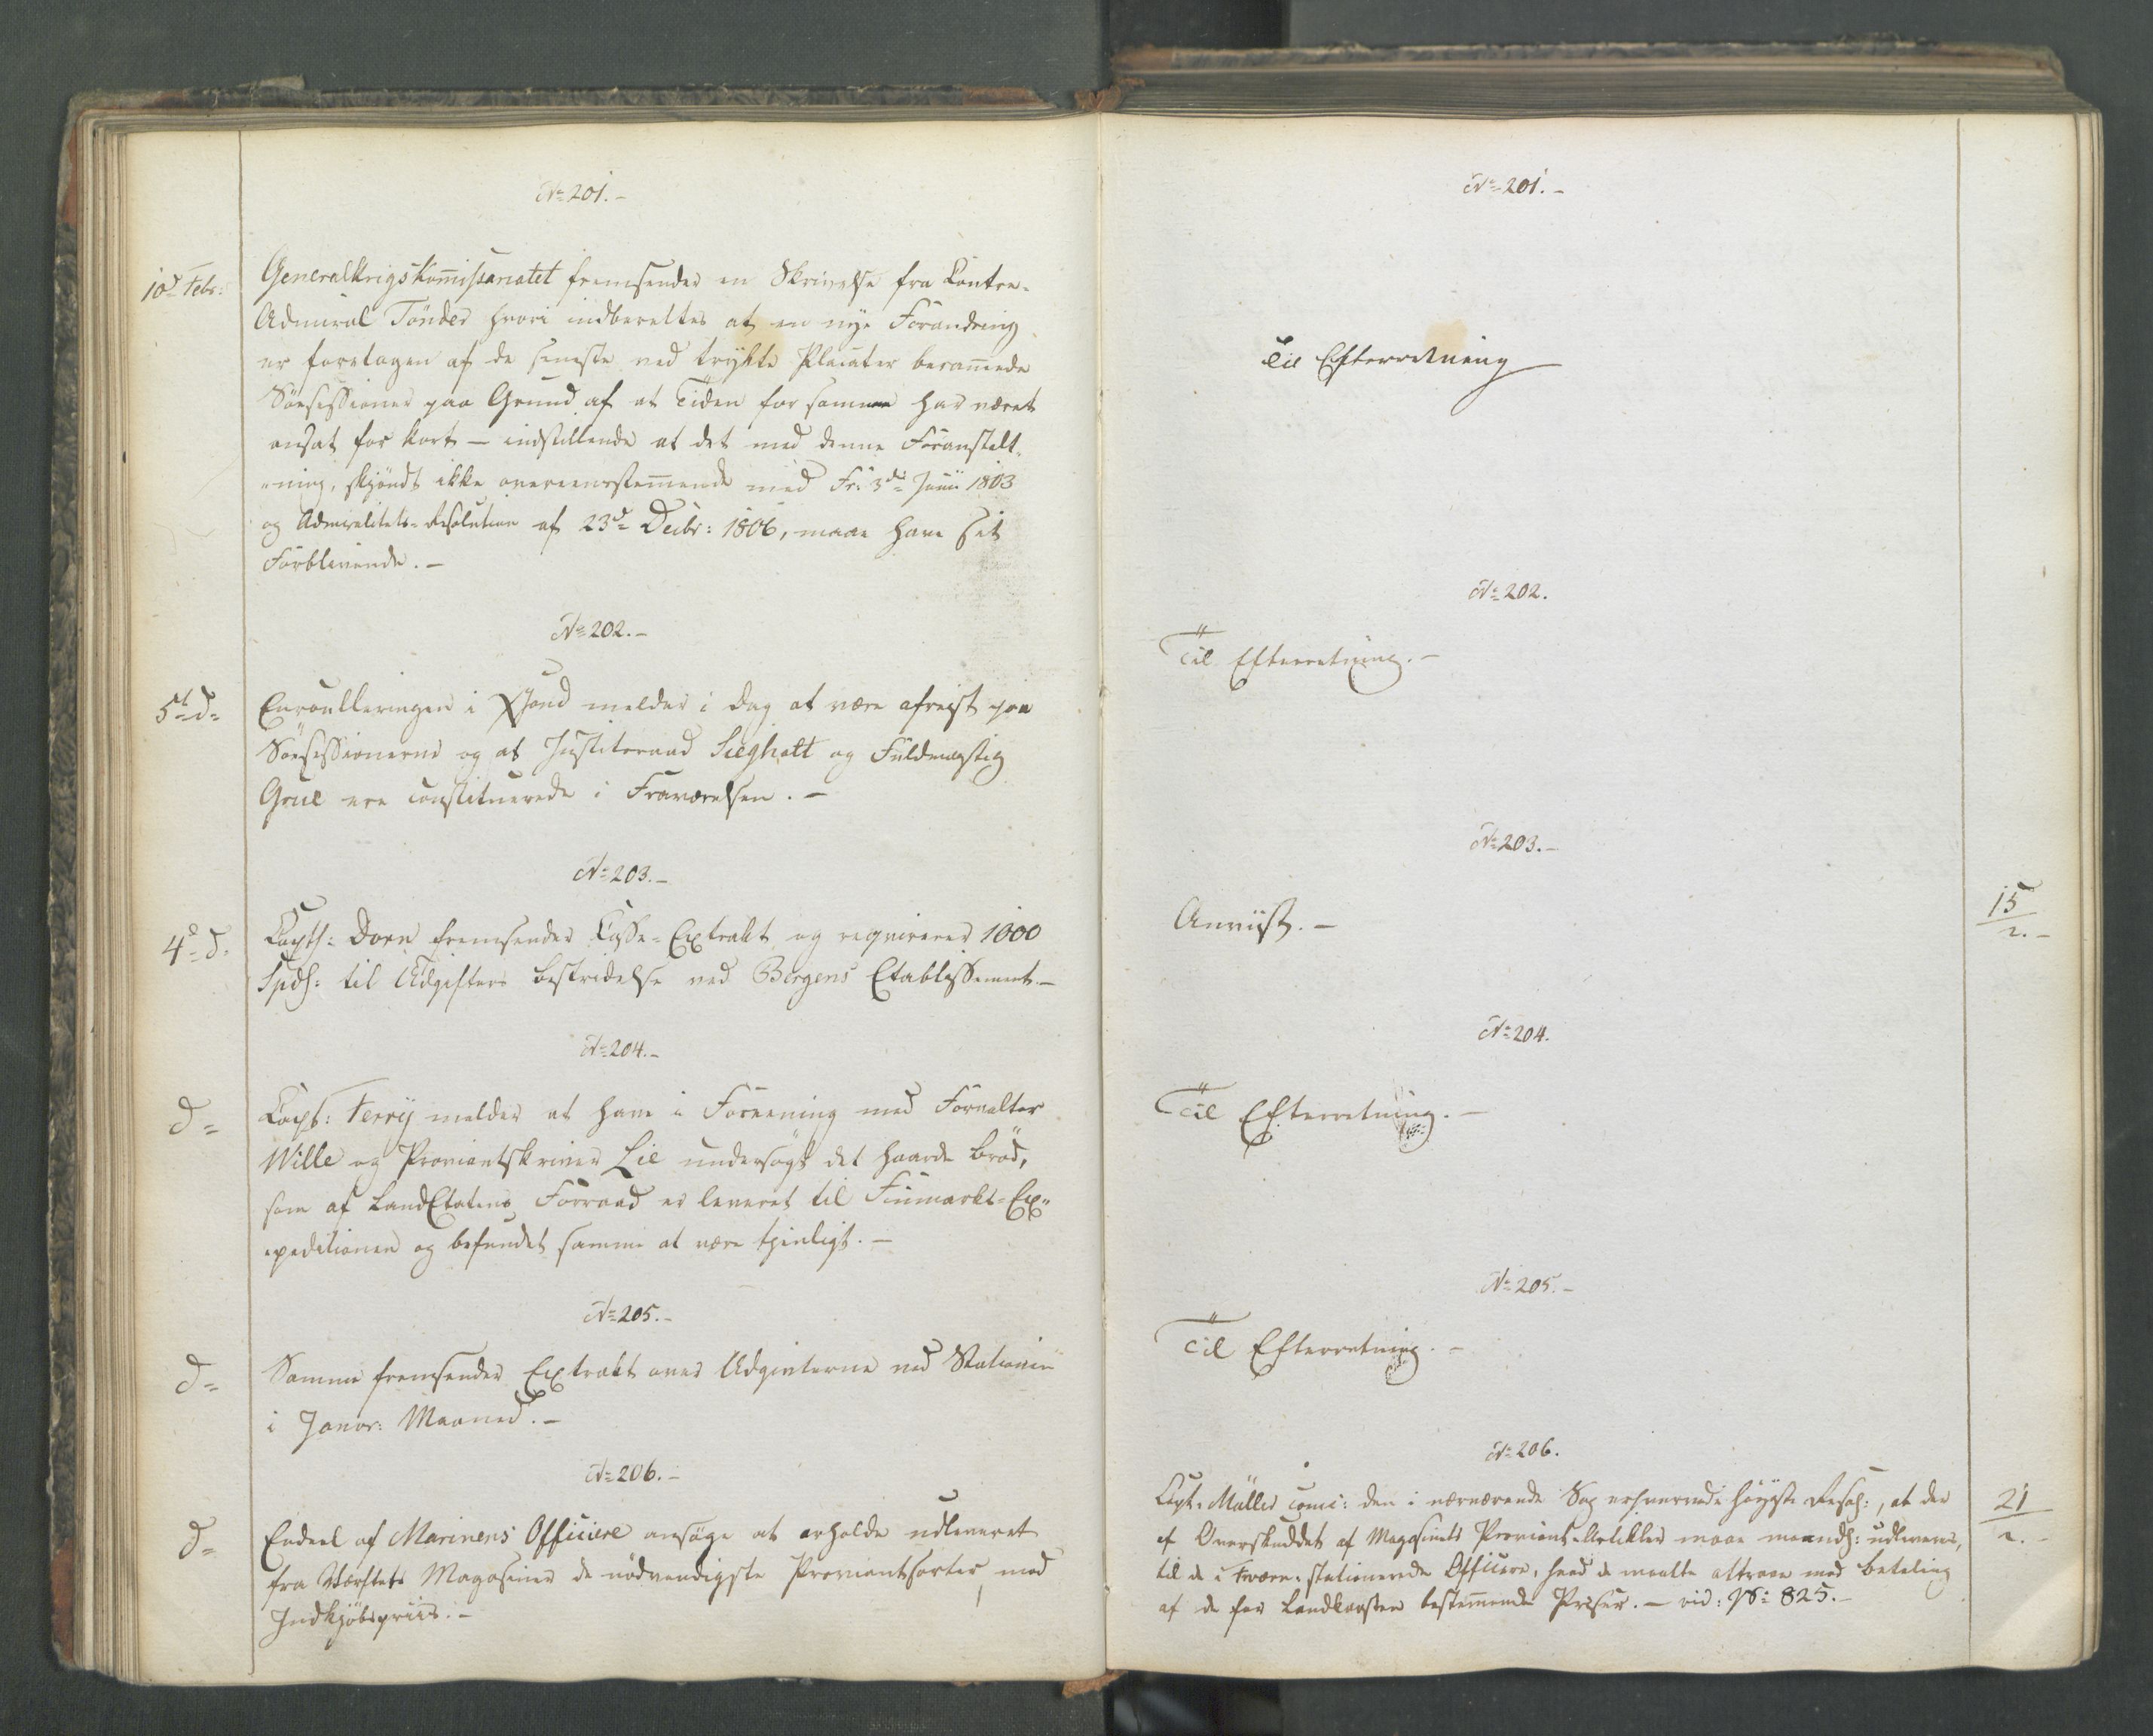 No 201.-
10de Febr:
GeneralKrigsKomissariatet fremsender en Skrivelse fra Contre-
Admiral Tönder hvori indberettes at en nye Forandring
er foretagen af de seneste ved trykte Placater beramede
Söesessioner paa Grund af at Tiden for samme har været
ansat for kort – indstillende at det med denne Foranstalt„
„ning, skjöndt ikke overeensstemende med Fr: 3die Junii 1803
og Admiralitets-Resolution af 23de Decbr: 1806, maae have sit
Forblivende.-
No 202.-
5te do
Enroulleringen i Xsand melder i Dag at være afreist paa
Söesessionerne og at Justitsraad Sieghott og Fuldmægtig
Grue ere constituerede i Fraværelsen.-
No 203.-
4de do
Captl: Dorn fremsender Casse-Extrakt og reqvirerer 1000
Spdl: til Udgifters bestridelse ved Bergens Etablissement.-
No 204.-
do
Capt: Ferry melder at have i Forening med Forvalter
Wille og Proviantskriver Lie undersögt det haarde bröd,
som af LandEtatens Forraad er leveret til Finmarks-Ex„
„peditionen og befundet samme at være tjenligt.-
No 205.-
do
Samme fremsender Extrakt over Udgivterne ved Stationen
i Janvr: Maaned.-
No 206.-
do
Endeel af Marinens Officiere ansöge at erholde udleveret
fra Værftets Magasiner de nödvendigste Proviantsorter, mod
Indkjöbspriis.-
No 201.-
Til Efterretning
No 202.
Til Efterretning.-
No 203.-
Anviist.-
15
2.-
No 204.
Til Efterretning.-
No 205.-
Til Efterretning.-
No 206.
Capt: Müller comc: den i nærværende Sag erhvervede höyeste Resol:, at der
af Overskuddet af Magasinets Proviant-Artikler maae maandl: udleveres,
til de i Fredrv: stationerede Officiere, hvad de maatte attraae mod betaling
af de for Landkassen bestemende Priser.- vid: No 825.-
21
2.-